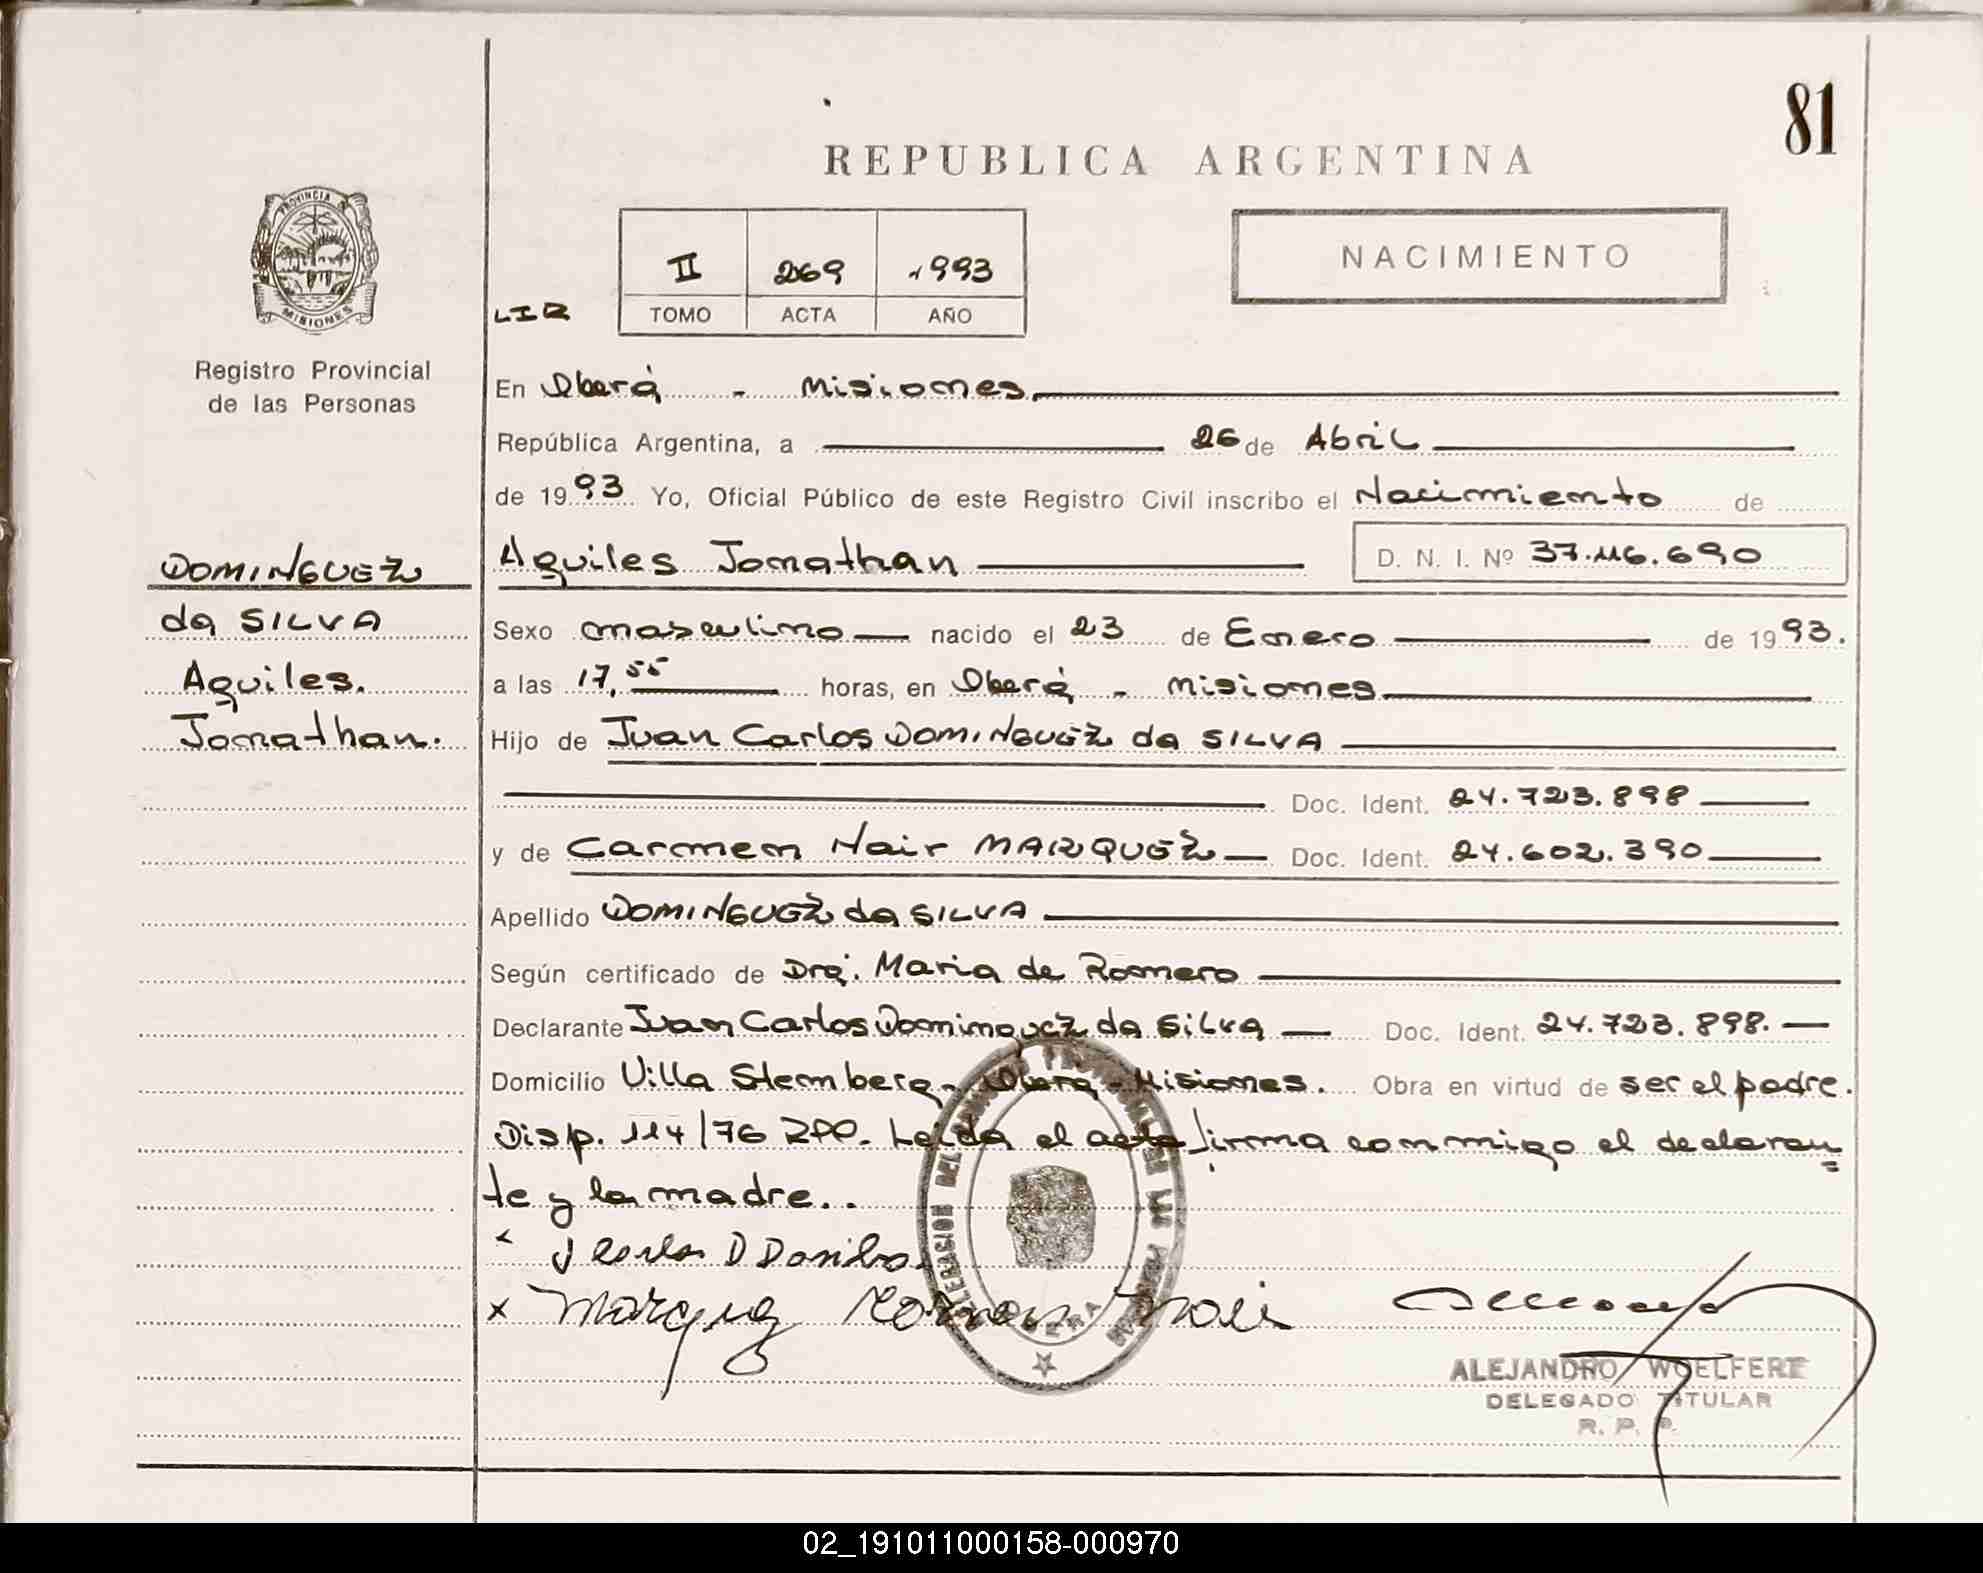 81
REPUBLICA ARGENTINA
PROVINCIA DE
MISIONES
Registro Provincial
de las Personas
NACIMIENTO
II 269 1993
TOMO ACTA AÑO
En Oberá - Misiones
República Argentina, a 26 de Abril
de 1993 Yo, Oficial Público de este Registro Civil inscribo el Nacimiento de
DOMINGUEZ
da SILVA
Aquiles.
Jonathan.
Aquiles Jonathan D. N. I. Nº 37.116.690
Sexo masculino nacido el 23 de Enero de 1993.
a las 17,55 horas, en Oberá - Misiones
Hijo de Juan Carlos DOMINGUEZ da SILVA
Doc. Ident. 24.723.898
y de Carmen Nair MARQUEZ Doc. Ident. 24.602.390
Apellido DOMINGUEZ da SILVA
Según certificado de Dra. Maria de Romero
Declarante Juan Carlos Dominguez da Silva Doc. Ident. 24.723.898.
Domicilio Villa Stemberg - Oberá - Misiones. Obra en virtud de ser el padre.
Disp. 114/76 RPP. Leida el acta firma conmigo el declaran
te y la madre..
x Marquez Carmen Nair
ALEJANDRO WOELFERT
DELEGADO TITULAR
R. P. P.
02_191011000158-000970